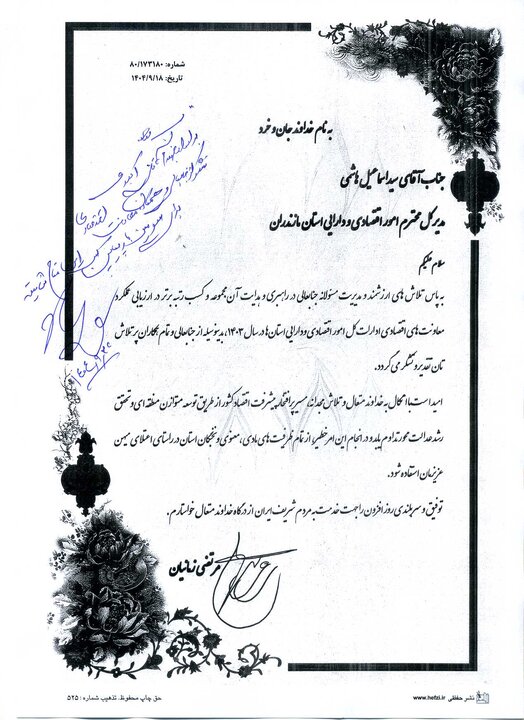 شماره: ۸۰/۱۷۳۱۸۰
تاریخ: ۱۴۰۴/۹/۱۸
به نام خداوند جان و خرد
جناب آقای سید اسماعیل هاشمی
مدیرکل محترم امور اقتصادی و دارایی استان مازندران
سلام علیکم
به پاس تلاش های ارزشمند و مدیریت مسئولانه جنابعالی در راهبری و هدایت آن مجموعه و کسب رتبه برتر در ارزیابی عملکرد
معاونت های اقتصادی ادارات کل امور اقتصادی و دارایی استان ها در سال ۱۴۰۳، بدینوسیله از جنابعالی و تمام همکاران پر تلاش
تان تقدیر و تشکر می گردد.
امید است با اتکال به خداوند متعال و تلاش مجدانه، مسیر پر افتخار پیشرفت اقتصاد کشور از طریق توسعه متوازن منطقه ای و تحقق
رشد عدالت محور تداوم یابد و در انجام این امر خطیر، از تمام ظرفیت های مادی، معنوی و نخبگان استان در راستای اعتلای میهن
عزیزمان استفاده شود.
توفیق و سربلندی روز افزون را جهت خدمت به مردم شریف ایران از درگاه خداوند متعال خواستارم.
مرتضی زمانیان
نشر حفظی www.hefzi.ir
حق چاپ محفوظ. تذهیب شماره: ۵۲۵